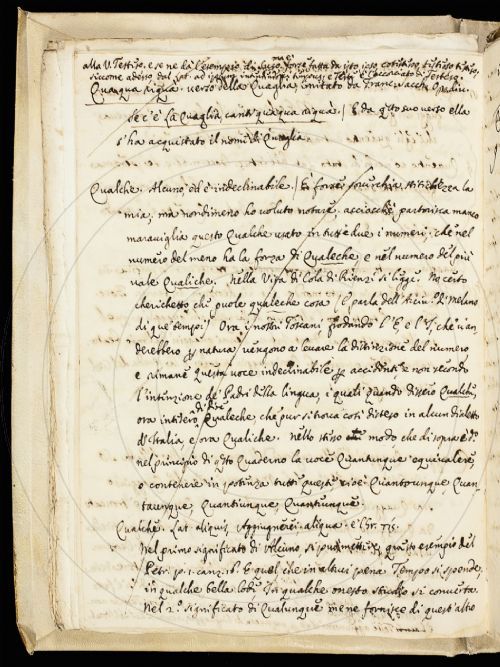 alla V. Testiso. e se ne dà l'esempio di
siccome adesso dal Lat. ad
Quaqua riqua. verso della Quaglia imitato da Franc. Sacch. Op. div.
se c'è la Quaglia, canti quaqua riquà. / E da qsto suo verso ella
s'ha acquistato il nome di Quaglia.
Qualche. Alcuno, ed è indeclinabile. / E forse soverchia stitichezza la
mia, ma nondimeno ho voluto notare. acciocchè partorisca manco
maraviglia questo Qualche usato in tutt'e due i numeri. che nel
numero del meno ha la forza di Qualeche, e nel numero del più
vale Qualiche. Nella Vita di Cola di Rienzi si legge. No certo
cherichetto che vuole qualeche cosa / E parla dell'Arciv. di Melano
di que' tempi / Ora i nostri Toscani rodendo l'E, e l'I, che v'an
derebbero per natura, vengono a levare la distinzione del numero
e rimane questa voce indeclinabile per accidente e non secondo
l'intenzione de' Padri della lingua, i quali quando dissero Qualche,
ora intesero di dire Qualeche che pur si trova così disteso in alcun dialetto
d'Italia, e ora Qualiche. Nello stesso modo che di sopra è do.
nel principio di qsto Quaderno la voce Quantunque equivalere,
o contenere in potenza tutti questi cioè Quantounque, Quan-
taunque, Quantiunque, Quanteunque.
Qualche. Lat. aliquis. Aggiugnerei. aliqua. e l Gr. τις.
Nel primo significato di Alcuno si può mettere questo esempio del
Petr. p. 1. canz. 16. E quel che in altrui pena Tempo si spende,
in qualche bella lode In qualche onesto studio si converta.
Nel 2.o significato di Qualunque me ne fornisce di quest'altro